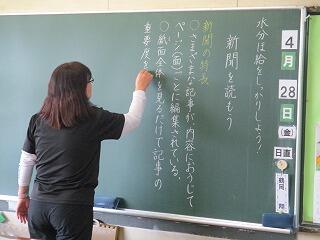 4
月
28
日
(金)
日直
鶴岡
翔
水分ほ給をしっかりしよう!
新聞を読もう
新聞の特長
○さまざまな記事が、内容におうじて
ページ(面)ごとに編集されている。
○紙面全体を見るだけで記事の
重要度を